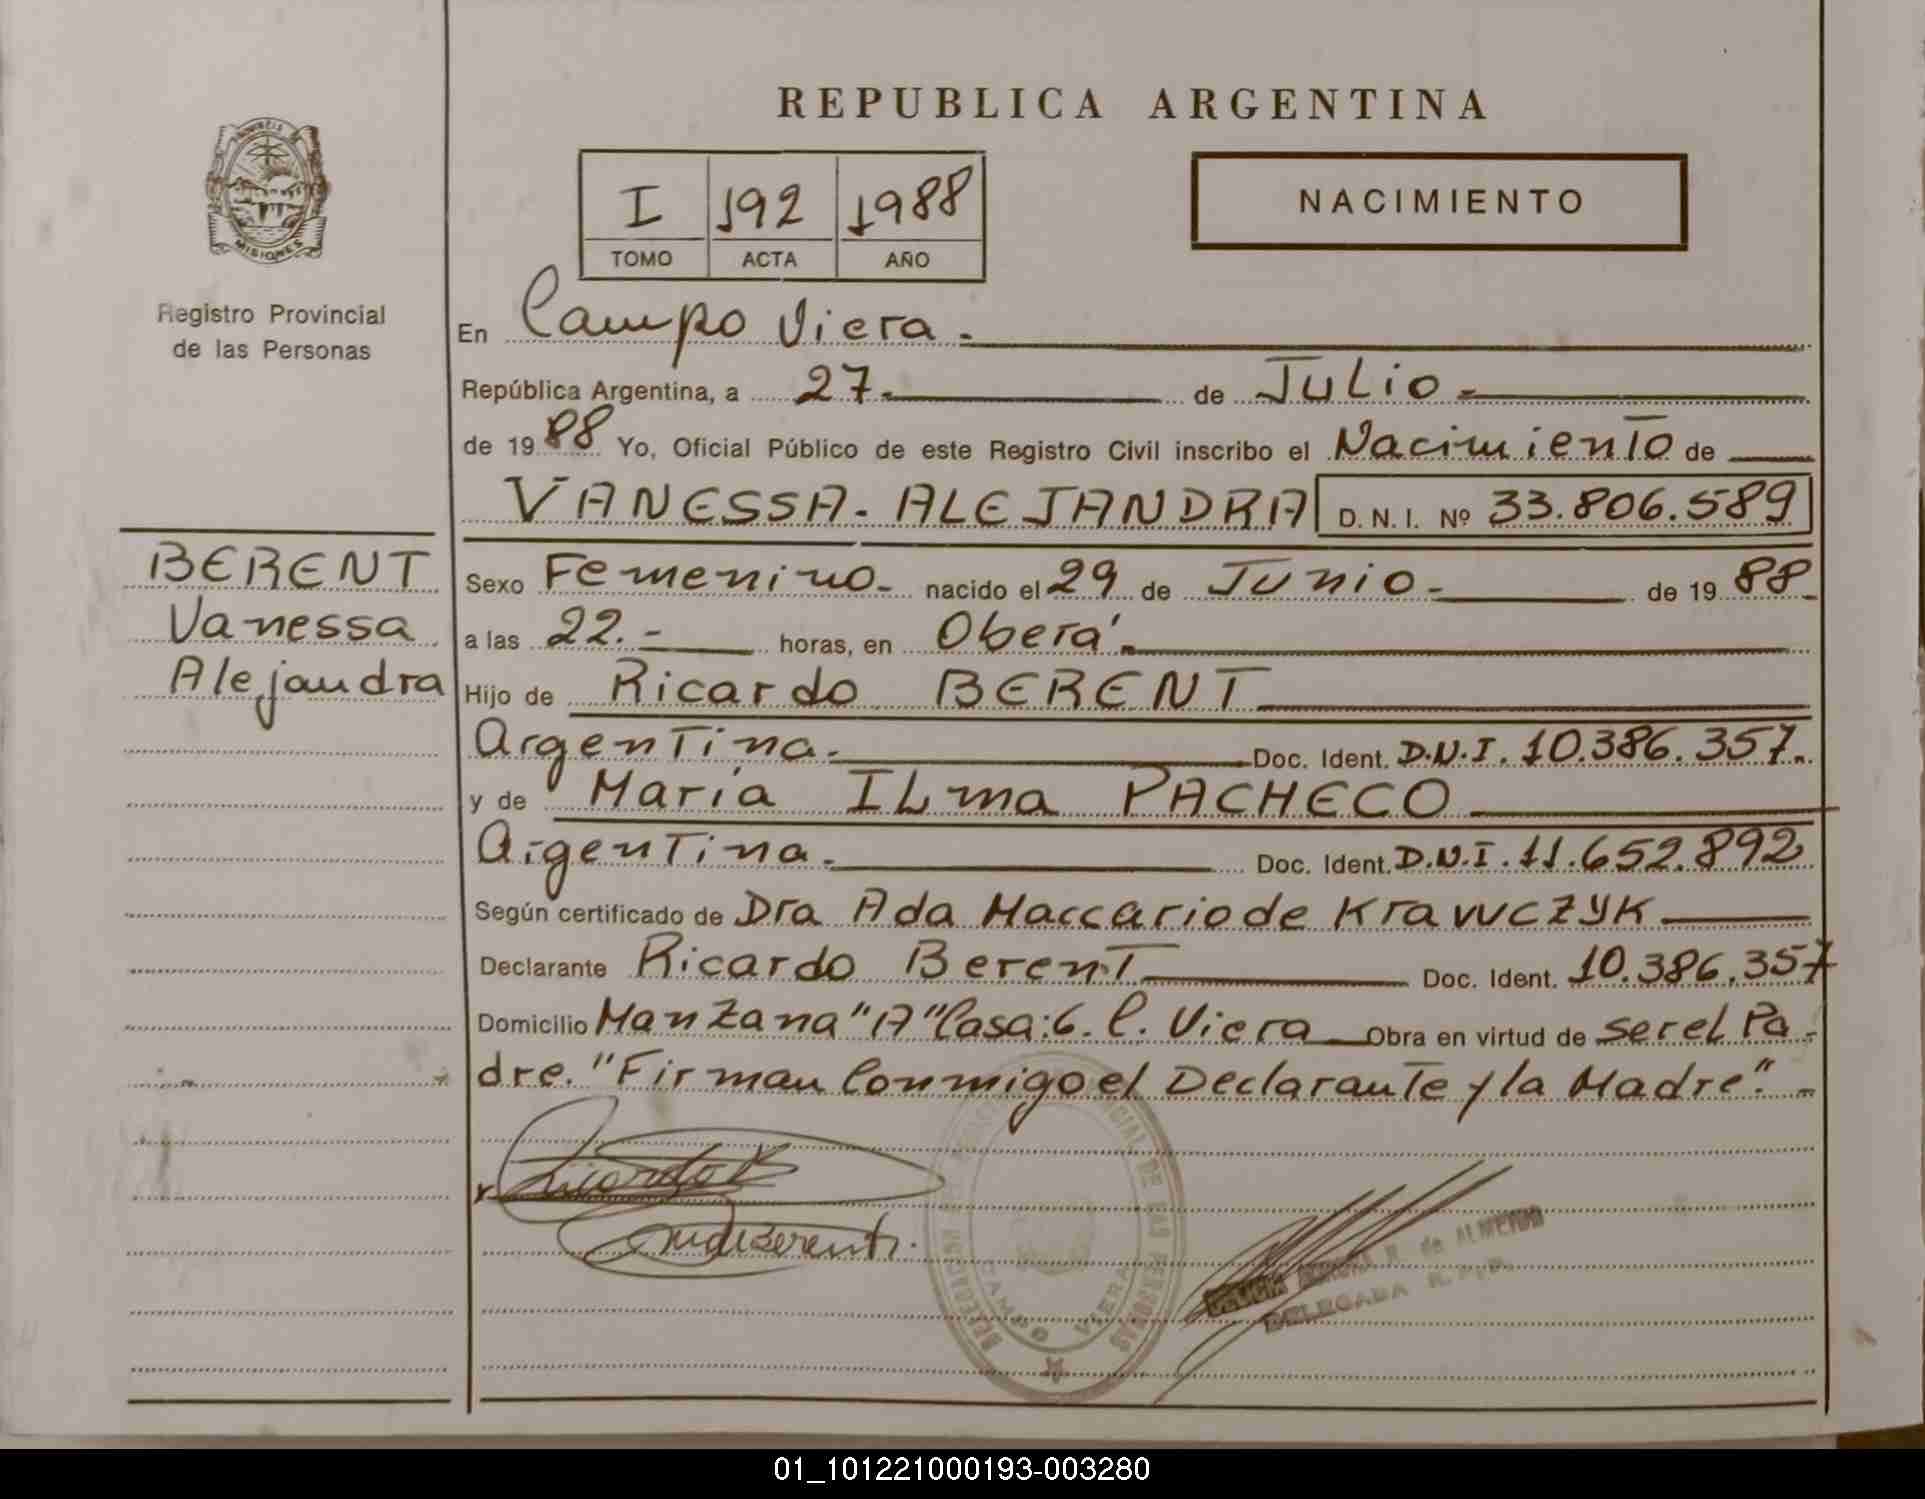 REPUBLICA ARGENTINA
PROVINCIA DE
MISIONES
Registro Provincial
de las Personas
I 192 1988
TOMO ACTA AÑO
NACIMIENTO
En Campo Viera.-
República Argentina, a 27.- de Julio.-
de 1988 Yo, Oficial Público de este Registro Civil inscribo el Nacimiento de
VANESSA-ALEJANDRA D.N.I. Nº 33.806.589
BERENT
Vanessa
Alejandra
Sexo Femenino.- nacido el 29 de Junio.- de 1988.-
a las 22.- horas, en Oberá.-
Hijo de Ricardo BERENT
Argentina.- Doc. Ident. D.N.I. 10.386.357.-
y de María ILma PACHECO
Argentina.- Doc. Ident. D.N.I. 11.652.892
Según certificado de Dra Ada Maccario de Krawczyk
Declarante Ricardo Berent Doc. Ident. 10.386.357
Domicilio Manzana "A" Casa: 6. C. Viera Obra en virtud de ser el Pa-
dre. "Firman Conmigo el Declarante y la Madre".-
Ricardo B
de Berent.
CIAL DE LAS PERSONAS
CAMPO VIERA
R. de ALMEIDA
DELEGADA R.P.P.
01_101221000193-003280